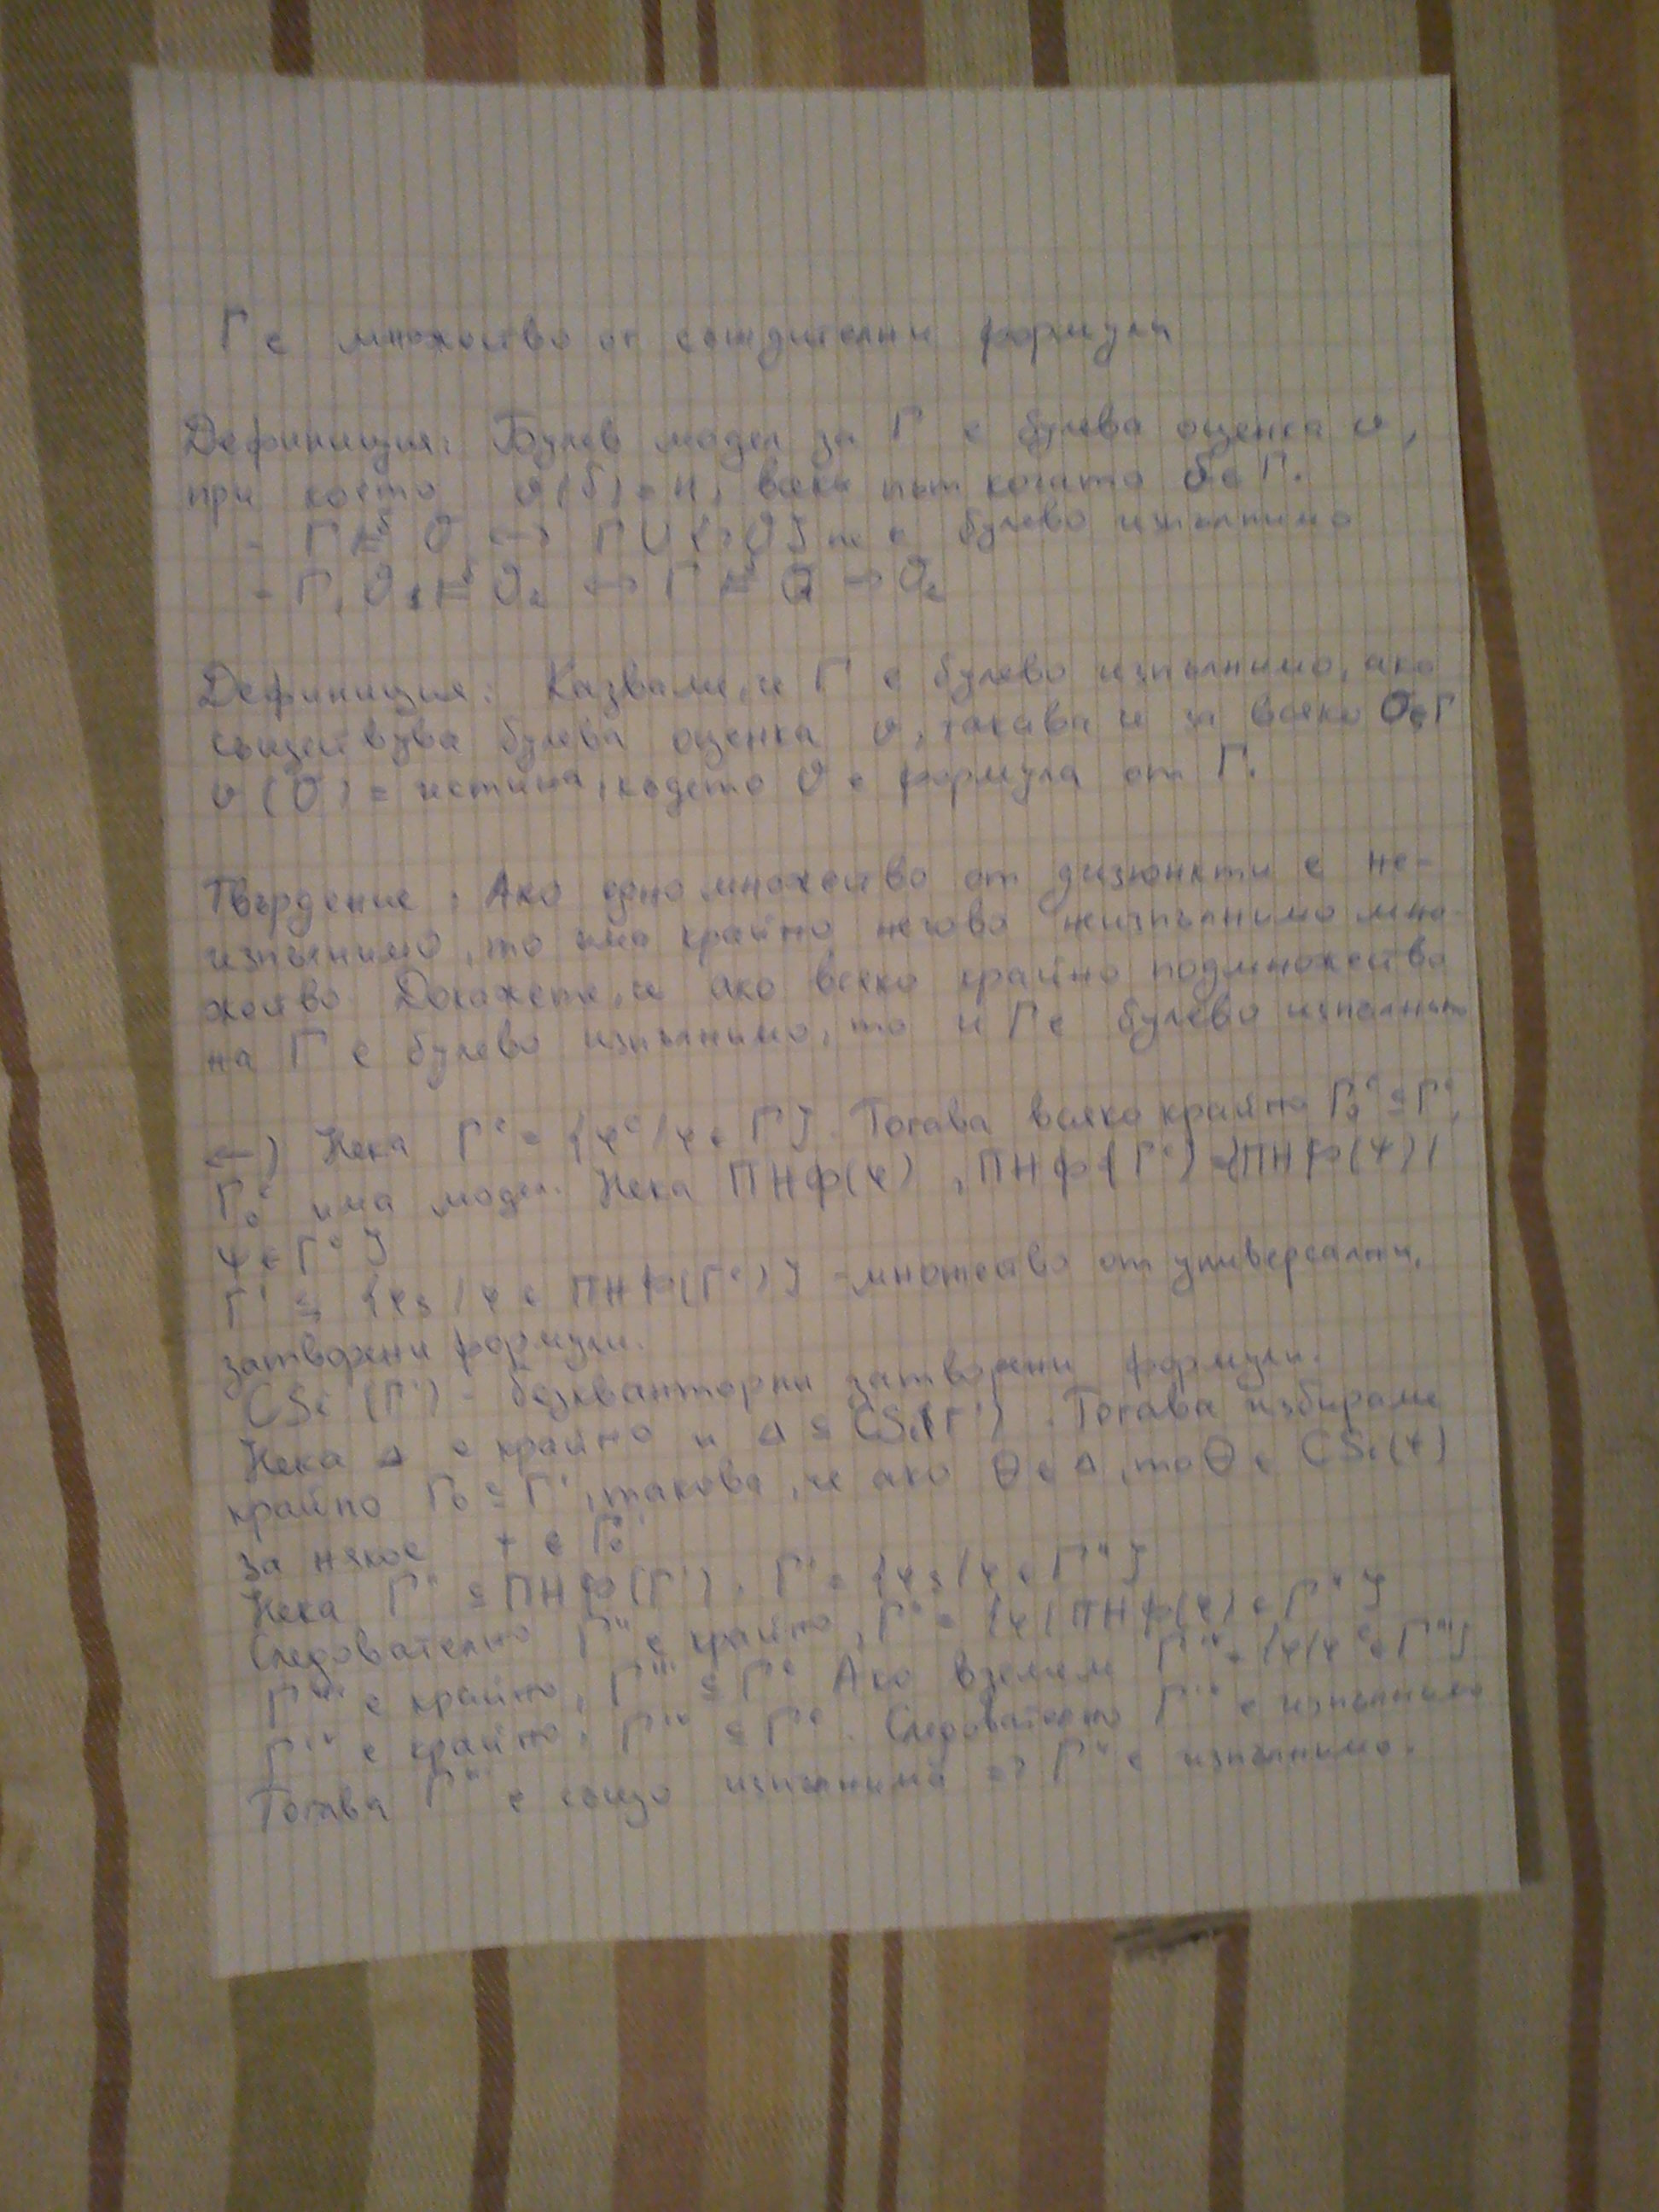 Γ е множество от съждителни формули
Дефиниция: Булев модел за Γ е булева оценка v,
при която v(σ) = и, всеки път когато σ ∈ Γ.
- Γ ⊨ᵇ σ ↔ Γ ∪ {¬σ} не е булево изпълнимо
- Γ, σ₁ ⊨ᵇ σ₂ ↔ Γ ⊨ᵇ σ₁ → σ₂
Дефиниция: Казваме, че Γ е булево изпълнимо, ако
съществува булева оценка v, такава че за всяко σ ∈ Γ
v(σ) = истина, където σ е формула от Γ.
Твърдение: Ако едно множество от дизюнкти е не-
изпълнимо, то има крайно негово неизпълнимо мно-
жество. Докажете, че ако всяко крайно подмножество
на Γ е булево изпълнимо, то и Γ е булево изпълнимо
←) Нека Γᶜ = {φᶜ / φ ∈ Γ}. Тогава всяко крайно Γ₀ᶜ ⊆ Γᶜ,
Γ₀ᶜ има модел. Нека ПНФ(φ), ПНФ(Γᶜ) = {ПНФ(ψ) /
ψ ∈ Γᶜ}
Γ' ⊆ {φs / φ ∈ ПНФ(Γᶜ)} - множество от универсални,
затворени формули.
CSi(Γ') - безкванторни затворени формули.
Нека Δ е крайно и Δ ⊆ CSi(Γ'). Тогава избираме
крайно Γ₀ ⊆ Γ', такова, че ако θ ∈ Δ, то θ ∈ CSi(ψ)
за някое ψ ∈ Γ₀'
Нека Γ'' ⊆ ПНФ(Γ'). Γ' = {φs / φ ∈ Γ''}
Следователно Γ'' е крайно, = {φ / ПНФ(φ) ∈ Γ''}
Γ''' е крайно, Γ''' ⊆ Γᶜ Ако вземем = {φ / φᶜ ∈ Γ'''}
е крайно, ⊆ Γᶜ. Следователно е изпълнимо
Тогава е също изпълнимо => Γ'' е изпълнимо.